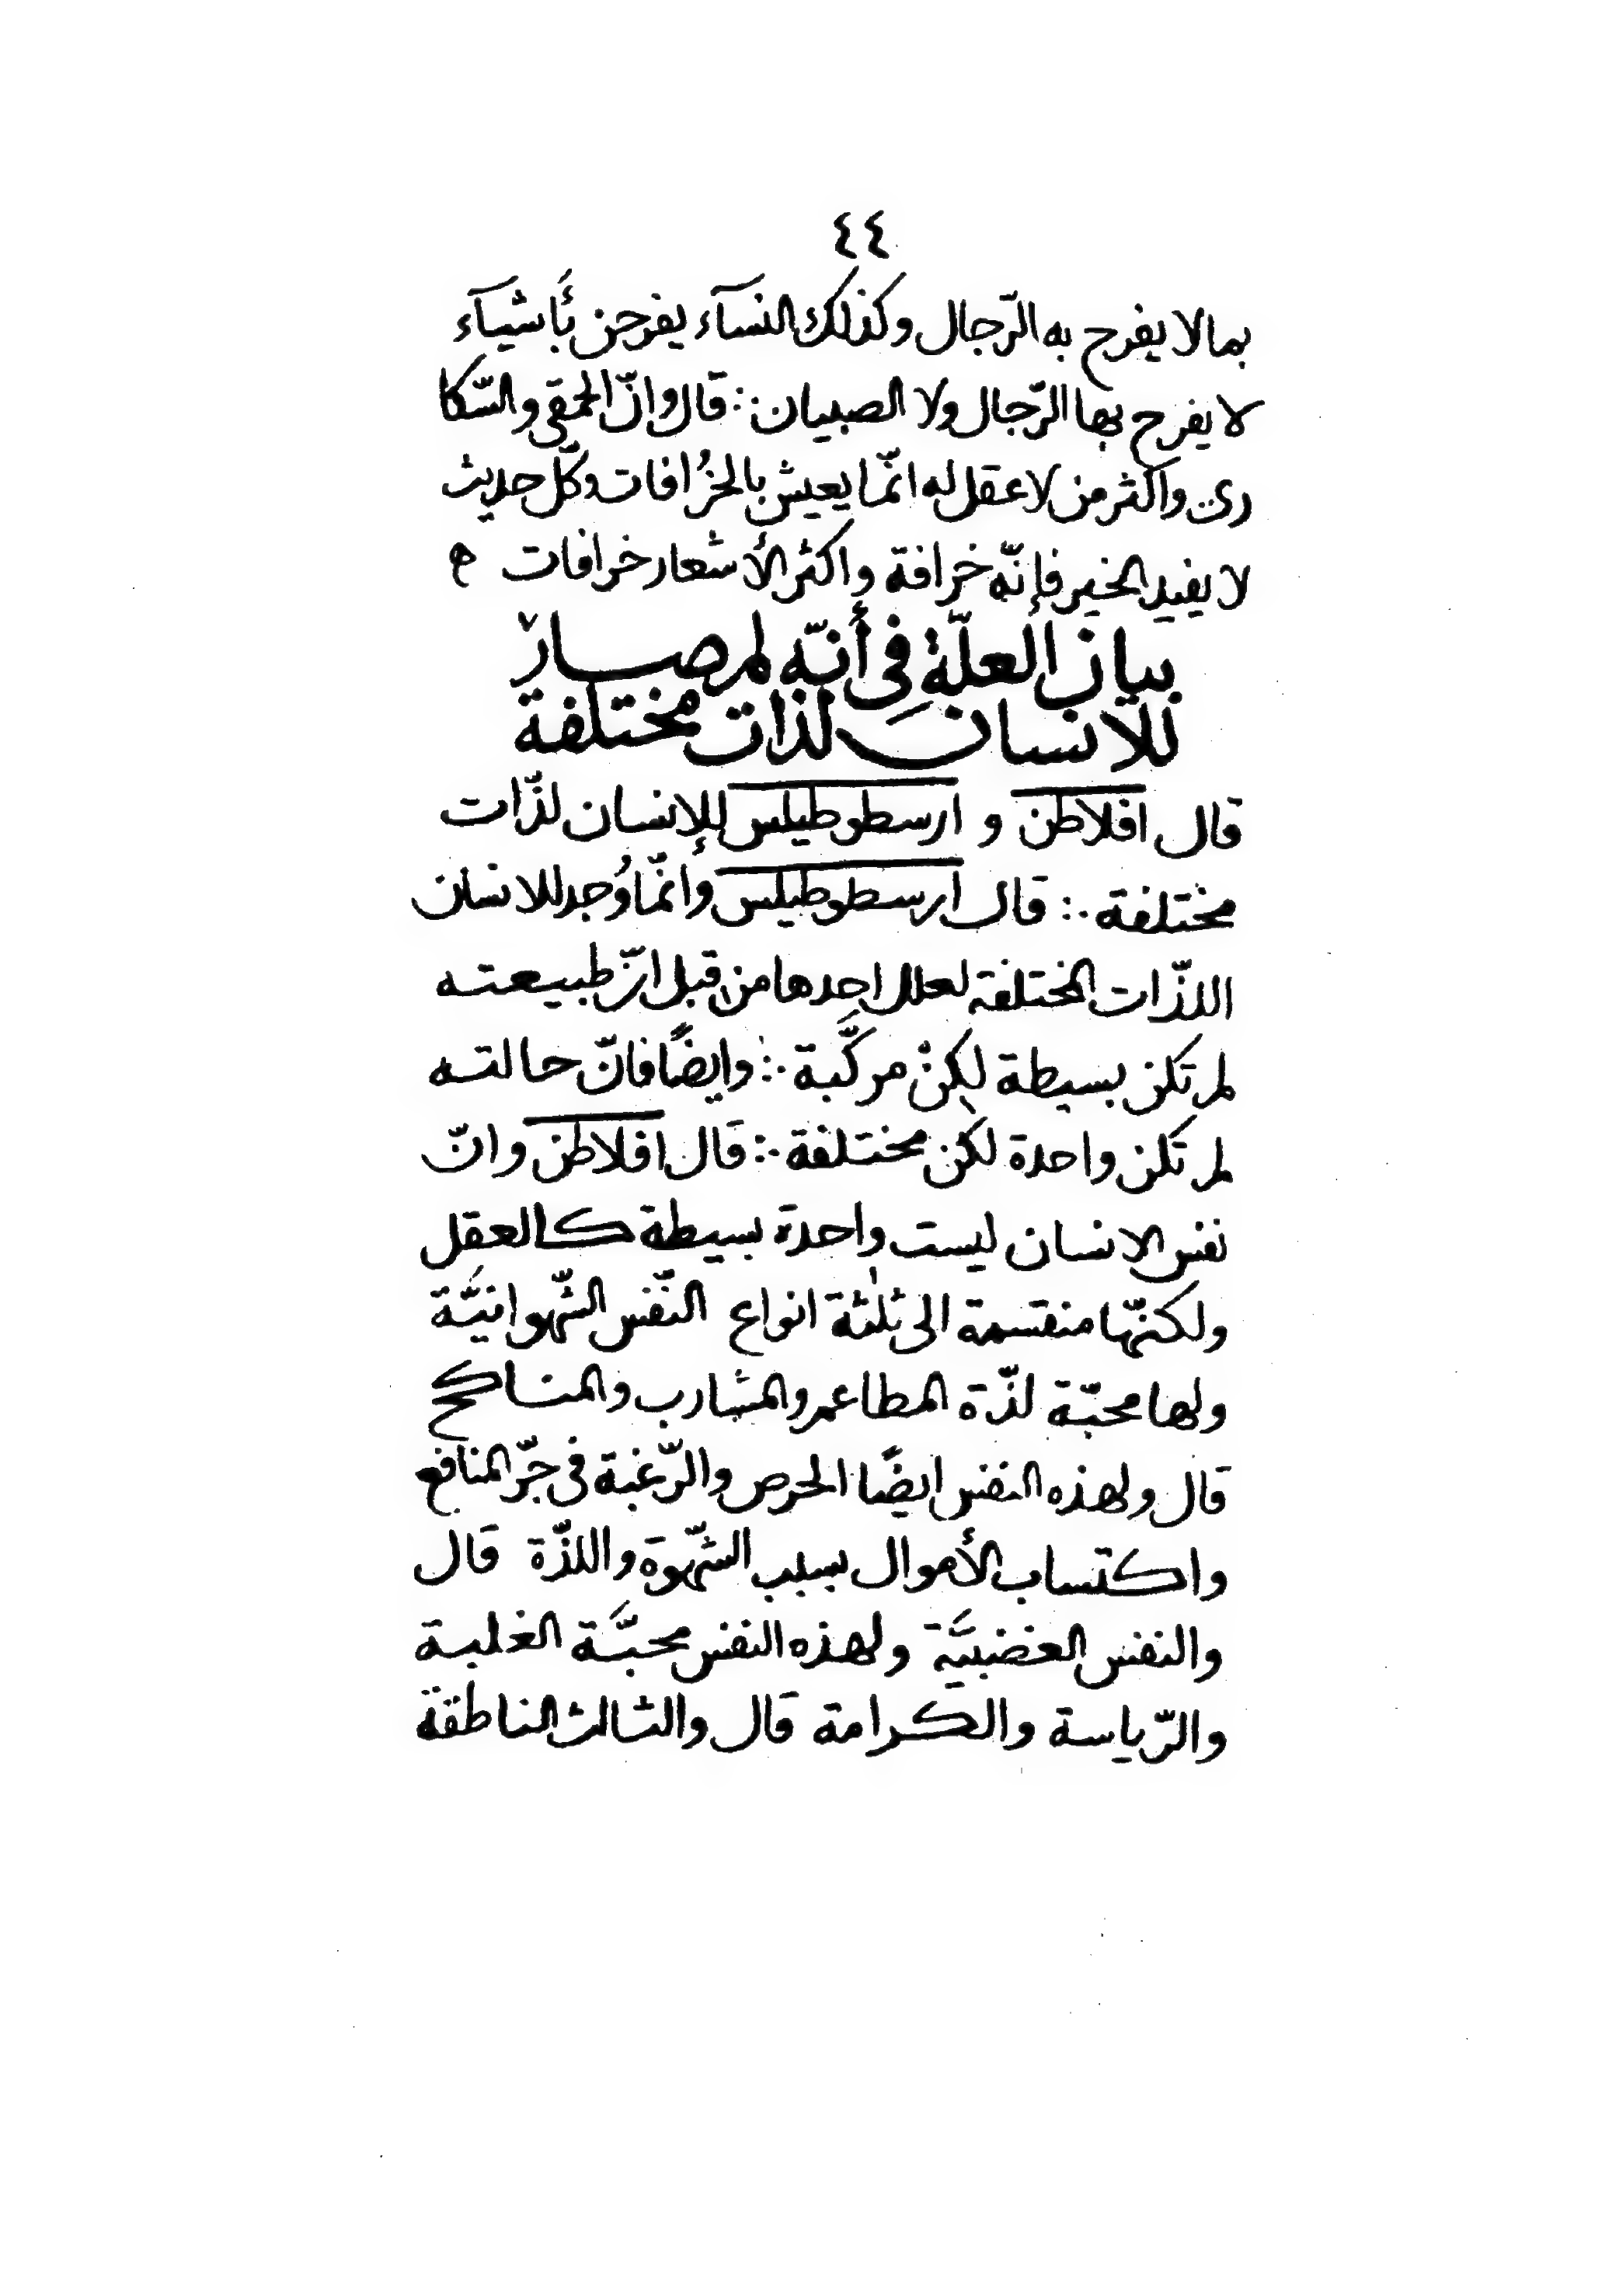 ٤٤
بما لا يفرح به الرّجال وكذلك النسآء يفرحن بأشيآء
لا يفرح بها الرّجال ولا الصبيان ∴ قال وانّ الحمقى والسّكا
رى واكثر من لا عقل له انّما يعيش بالخُرافات وكلّ حديث
لا يفيد الخير فإنّه خرافة واكثر الأشعار خرافات ه
بيان العلّة فِى أنّه لم صار
للانسان لذات مختلفة
قال افلاطن و ارسطوطيلس للإنسان لذّات
مختلفة ∴ قال ارسطوطيلس وانّما وُجد للانسان
اللذّات المختلفة لعلل احدها من قبل انّ طبيعته
لم تكن بسيطة لكنْ مركَّبة ∴ وايضًا فانّ حالته
لم تكن واحدة لكن مختلفة ∴ قال افلاطن وانّ
نفس الانسان ليست واحدة بسيطة كالعقل
ولكنّها منقسمة الى ثلٰثة انواع النّفس الشّهوانيَّة
ولها محبّة لذّة المطاعم والمشارب والمناكح
قال ولهذه النفس ايضًا الحرص والرّغبة فى جرّ المنافع
واكتساب الأموال بسبب الشّهوة واللذّة قال
والنفس الغضبيَّة ولهذه النفس محبَّة الغلبة
والرّياسة والكرامة قال والثالث الناطقة